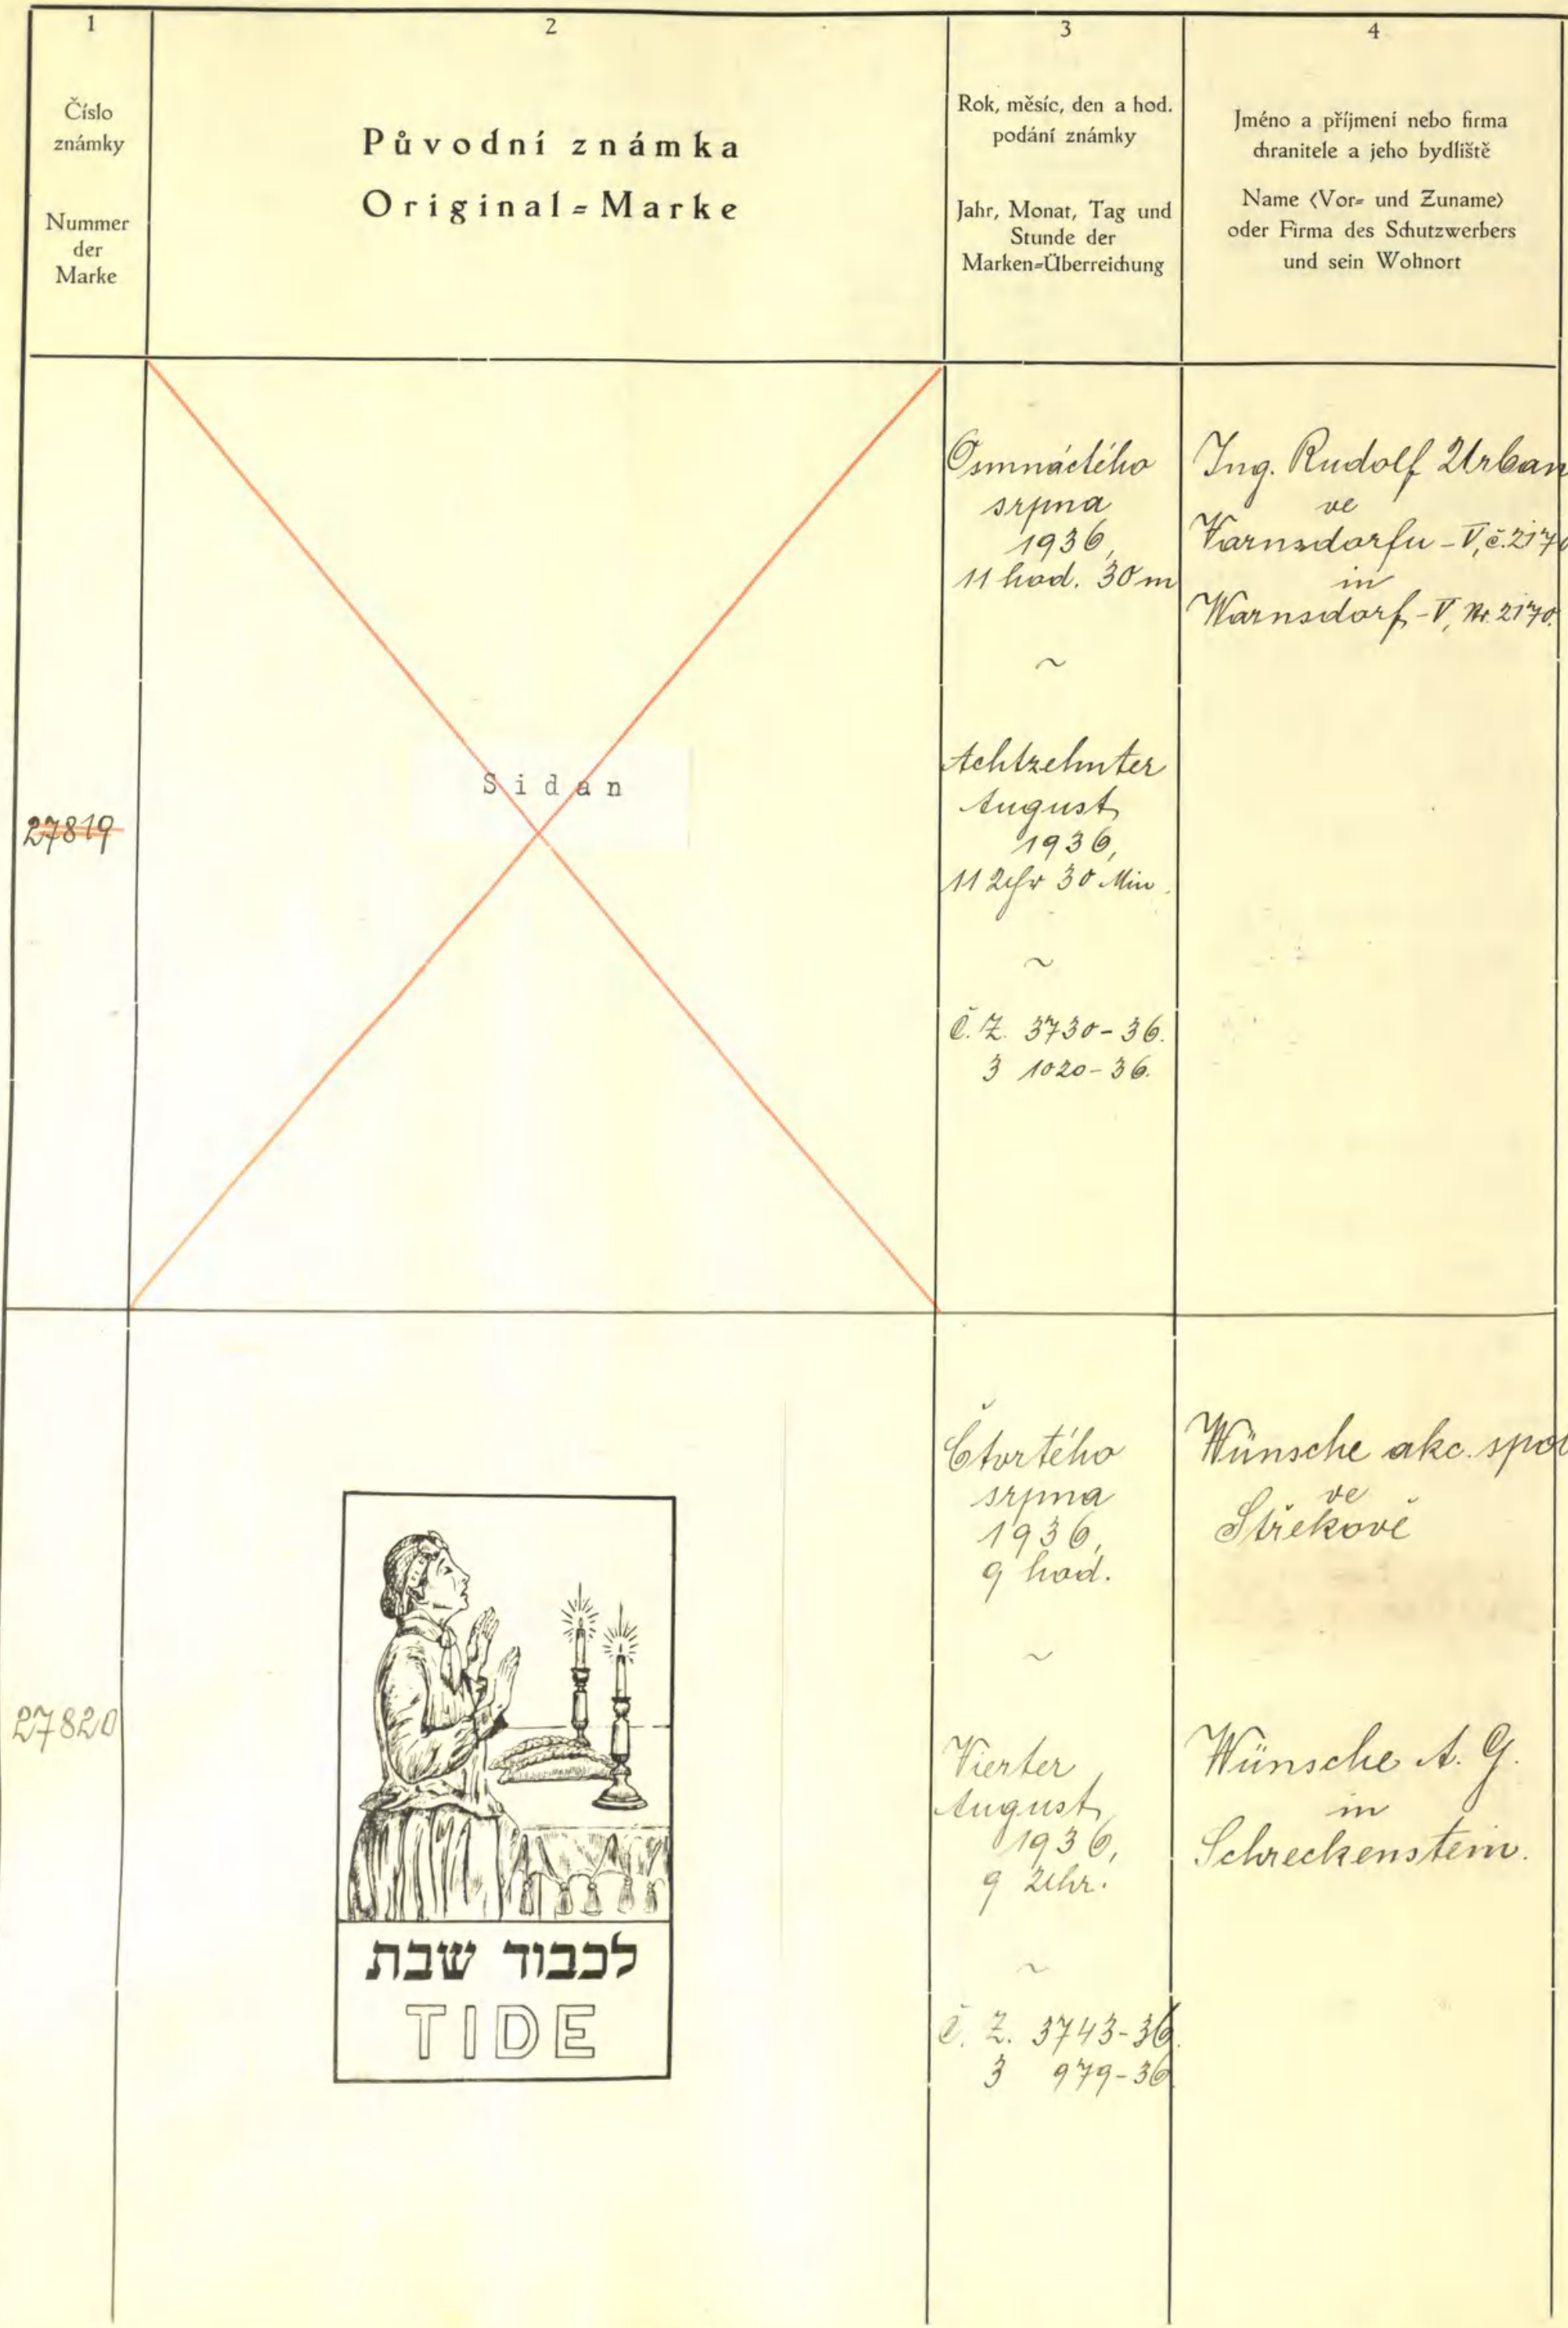 1
Číslo
známky
Nummer
der
Marke
2
Původní známka
Original=Marke
3
Rok, měsíc, den a hod.
podání známky
Jahr, Monat, Tag und
Stunde der
Marken=Überreichung
4
Jméno a příjmení nebo firma
chranitele a jeho bydliště
Name (Vor= und Zuname)
oder Firma des Schutzwerbers
und sein Wohnort
27819
Sidan
Osmnáctého
srpna
1936,
11 hod. 30 m
~
Achtzehnter
August
1936,
11 Uhr 30 Min.
~
Č. Z. 3730-36.
3 1020-36.
Ing. Rudolf Urban
ve
Varnsdorfu-V, č. 2170
in
Warnsdorf-V, Nr. 2170.
27820
לכבוד שבת
TIDE
Čtvrtého
srpna
1936,
9 hod.
~
Vierter
August
1936,
9 Uhr.
~
Č. Z. 3743-36.
3 979-36.
Wünsche akc. spol
ve
Střekově
Wünsche A. G.
in
Schreckenstein.